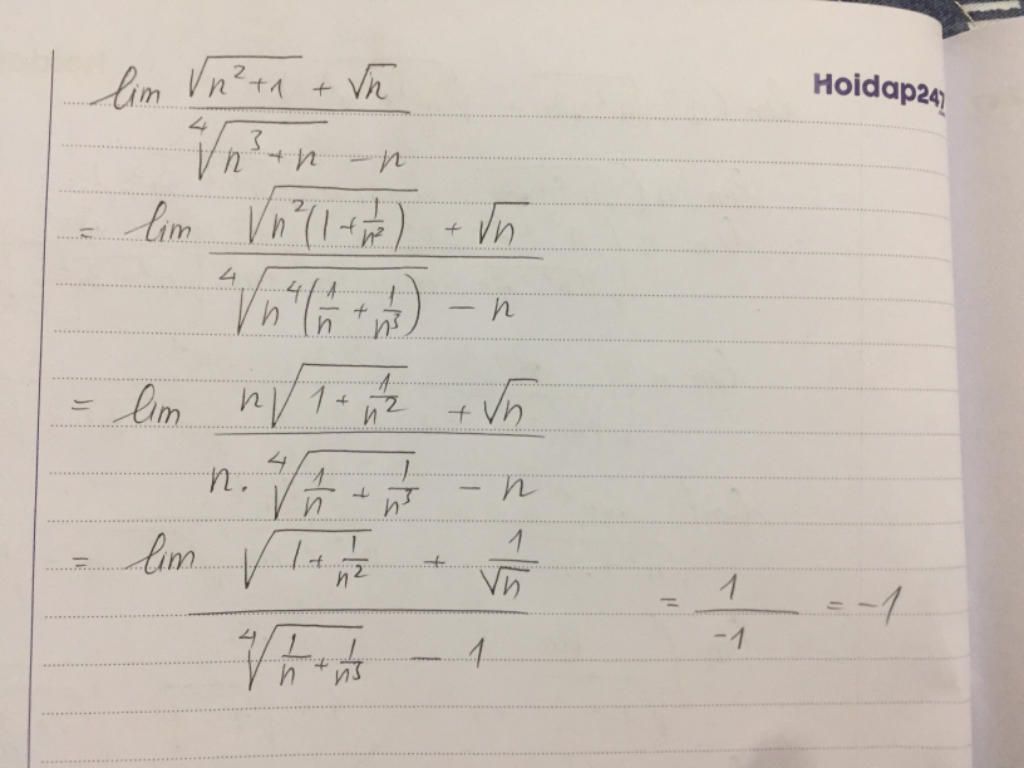 Hoidap247
lim (√(n²+1) + √n) / (⁴√(n³+n) - n)
= lim (√(n²(1+1/n²)) + √n) / (⁴√(n⁴(1/n + 1/n³)) - n)
= lim (n√(1+1/n²) + √n) / (n. ⁴√(1/n + 1/n³) - n)
= lim (√(1+1/n²) + 1/√n) / (⁴√(1/n + 1/n³) - 1) = 1/-1 = -1